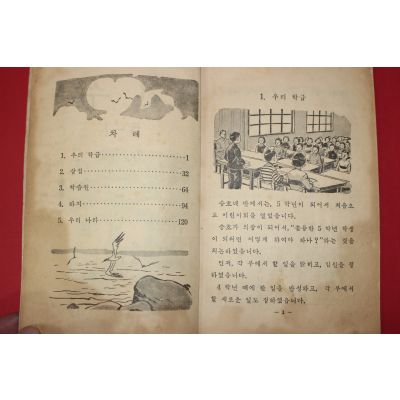 차 례
1. 우리 학급 ················ 1
2. 상점 ················ 32
3. 학습원 ················ 64
4. 하지 ················ 94
5. 우리 나라 ················ 120
1. 우리 학급
승호네 반에서는, 5 학년이 되어서 처음으
로 어린이회를 열었읍니다.
승호가 의장이 되어서, "훌륭한 5 학년 학생
이 되려면 어떻게 하여야 하나?"라는 것을
의논하였읍니다.
먼저, 각 부에서 할 일을 밝히고, 임원을 정
하였읍니다.
4 학년 때에 한 일을 반성하고, 각 부에서
할 새로운 일도 정하였읍니다.
- 1 -